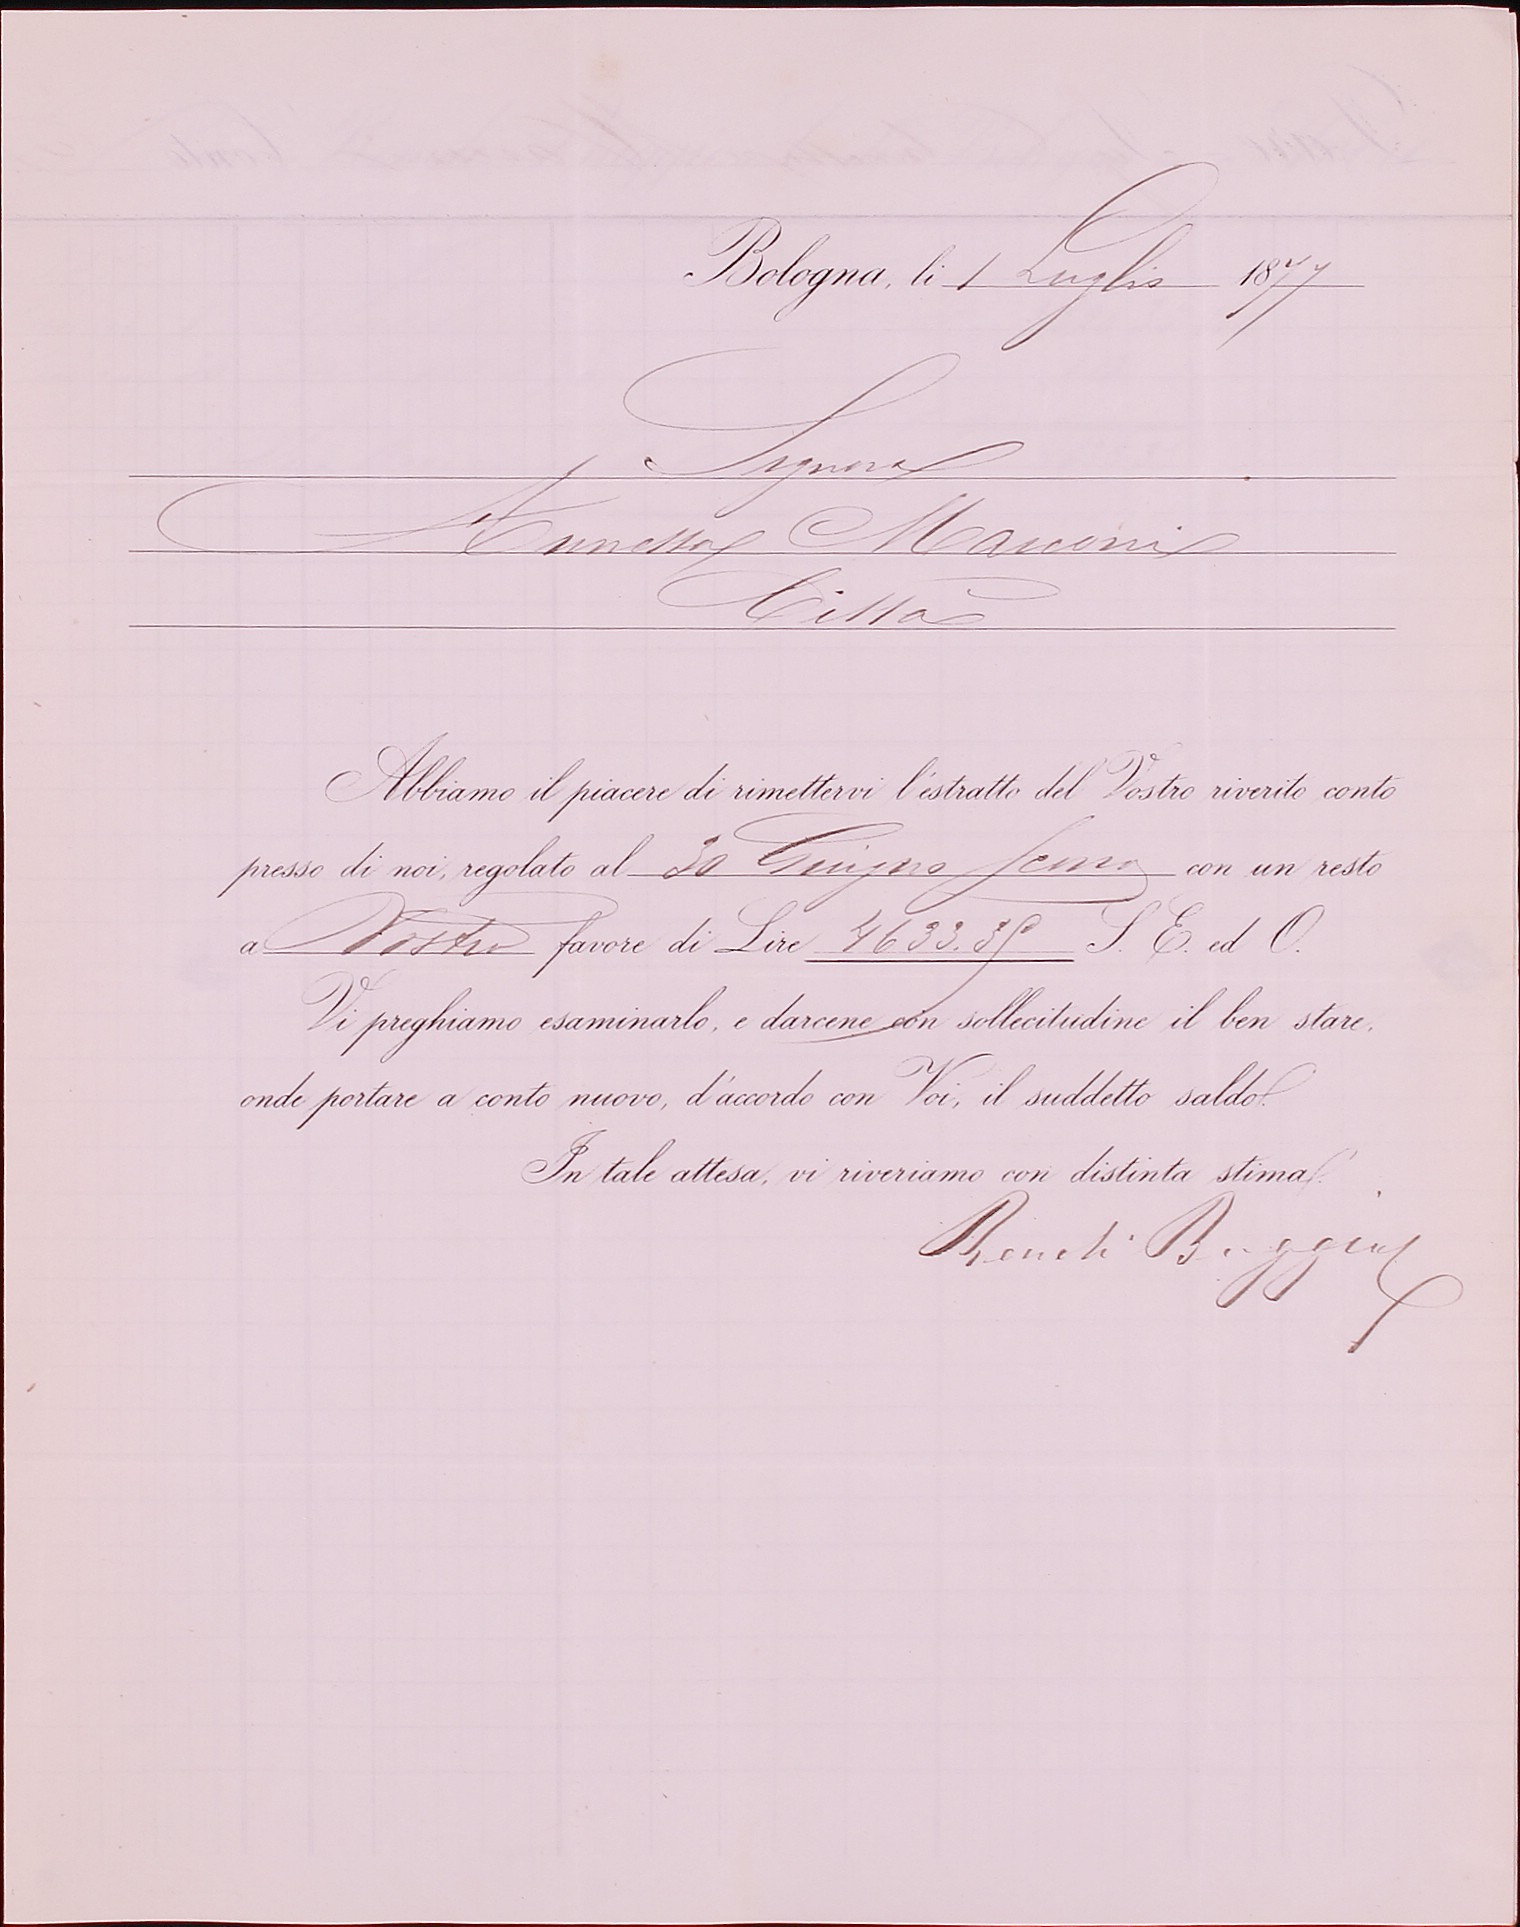 Bologna, li 1 Luglio 1877
Signora
Annetta Marconi
Città
Abbiamo il piacere di rimettervi l'estratto del Vostro riverito conto
presso di noi, regolato al 30 Giugno scorso con un resto
a Vostro favore di Lire 4633.35 S. E. ed O.
Vi preghiamo esaminarlo, e darcene con sollecitudine il ben stare,
onde portare a conto nuovo, d'accordo con Voi, il suddetto saldo.
In tale attesa, vi riveriamo con distinta stima.